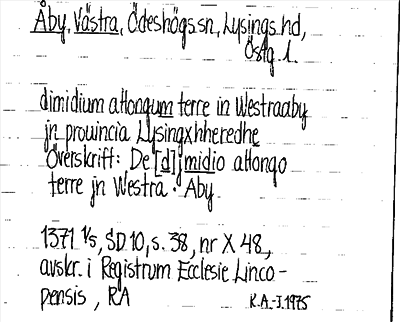 Åby, Västra, Ödeshögs sn, Lysings hd,
Östg. l.
dimidium attongum terre in Westraaby
jn prouincia Lysingxhheredhe
Överskrift: De [d]jmidio attongo
terre jn Westra Aby
1371 1/5, SD 10, s. 38, nr X 48,
avskr. i Registrum Ecclesie Linco-
pensis, RA
R.A-J. 1975